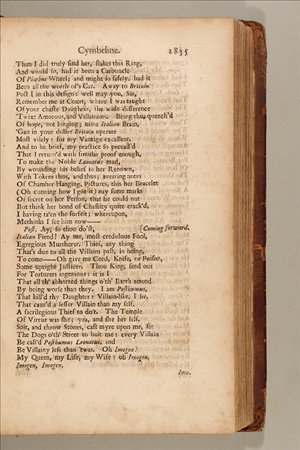 Cymbeline. 2835
Than I did truly find her, stakes this Ring,
And would so, had it been a Carbuncle
Of Phœbus Wheel; and might so safely, had it
Been all the worth of's Car. Away to Britain
Post I in this design: well may you, Sir,
Remember me at Court, where I was taught
Of your chaste Daughter, the wide difference
'Twixt Amorous, and Villainous. Being thus quench'd
Of hope, not longing; mine Italian Brain,
'Gan in your duller Britain operate
Most vildly: for my Vantage excellent.
And to be brief, my practice so prevail'd
That I return'd with simular proof enough,
To make the Noble Leonatus mad,
By wounding his belief to her Renown,
With Tokens thus, and thus; averring notes
Of Chamber-Hanging, Pictures, this her Bracelet
(Oh cunning how I got it) nay some marks
Of secret on her Person, that he could not
But think her bond of Chastity quite crack'd,
I having ta'en the forfeit; whereupon,
Methinks I see him now——
Post. Ay, so thou do'st, [Coming forward.
Italian Fiend! Ay me, most credulous Fool,
Egregious Murtherer, Thief, any thing
That's due to all the Villains past, in being,
To come——Oh give me Cord, Knife, or Poison,
Some upright Justicer. Thou King, send out
For Torturers ingenious; it is I
That all th' abhorred things o'th' Earth amend
By being worse than they. I am Posthumus,
That kill'd thy Daughter: Villain-like, I lie,
That caus'd a lesser Villain than my self,
A sacrilegious Thief to do't. The Temple
Of Virtue was she; yea, and she her self.
Spit, and throw Stones, cast myre upon me, set
The Dogs o'th' Street to bait me: every Villain
Be call'd Posthumus Leonatus, and
Be Villainy less than 'twas. Oh Imogen!
My Queen, my Life, my Wife: oh Imogen,
Imogen, Imogen.
Imo.